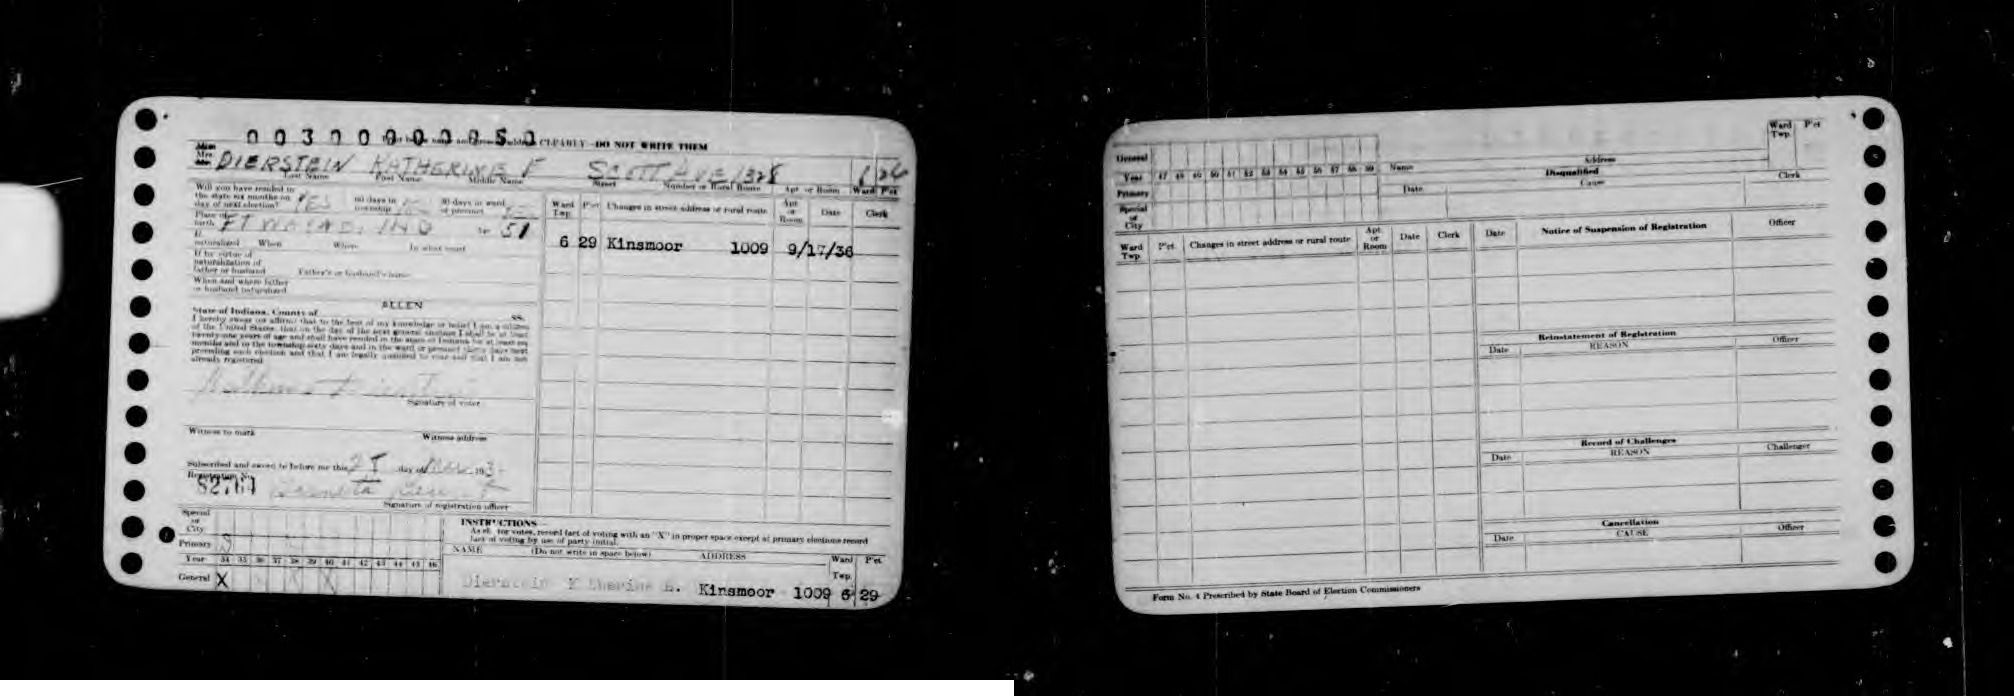 0 0 3 0 0 0 0 0 0 5 0 CLEARLY - DO NOT WRITE THEM
Mrs. DIERSTEIN KATHERINE F SCOTT AVE 1328
Last Name First Name Middle Name Street Number or Rural Route Apt or Room Ward P'ct
Will you have resided in
the state six months on
day of next election? YES 60 days in
township 30 days in ward
or precinct
Place of
birth FT WAYNE, IND 51
If
naturalized When Where In what court
If by virtue of
naturalization of
father or husband Father's or husband's name
When and where father
or husband naturalized
ALLEN
State of Indiana, County of ss.
I hereby swear (or affirm) that to the best of my knowledge or belief I am a citizen
of the United States; that on the day of the next general election I shall be at least
twenty-one years of age and shall have resided in the state of Indiana for at least six
months and in the township sixty days and in the ward or precinct thirty days next
preceding such election and that I am legally qualified to vote and that I am not
already registered.
Signature of voter
Witness to mark Witness address
Subscribed and sworn to before me this day of 193
Registration No.
Signature of registration officer
Ward
Twp. P'ct Changes in street address or rural route Apt.
or
Room Date Clerk
6 29 Kinsmoor 1009 9/17/36
Special
or
City
Primary
Year 34 35 36 37 38 39 40 41 42 43 44 45 46
General X
INSTRUCTIONS
As el. tor votes, record fact of voting with an "X" in proper space except at primary elections record
fact of voting by use of party initial.
NAME (Do not write in space below) ADDRESS Ward
Twp. P'ct
Dierstein Katherine Kinsmoor 1009 6 29
General
Year 47 48 49 50 51 52 53 54 55 56 57 58 59
Primary
Special
or
City
Name Address Ward
Twp. P'ct
Disqualified
Date Cause Clerk
Ward
Twp. P'ct Changes in street address or rural route Apt.
or
Room Date Clerk
Date Notice of Suspension of Registration Officer
Reinstatement of Registration
Date REASON Officer
Record of Challenges
Date REASON Challenger
Cancellation
Date CAUSE Officer
Form No. 4 Prescribed by State Board of Election Commissioners